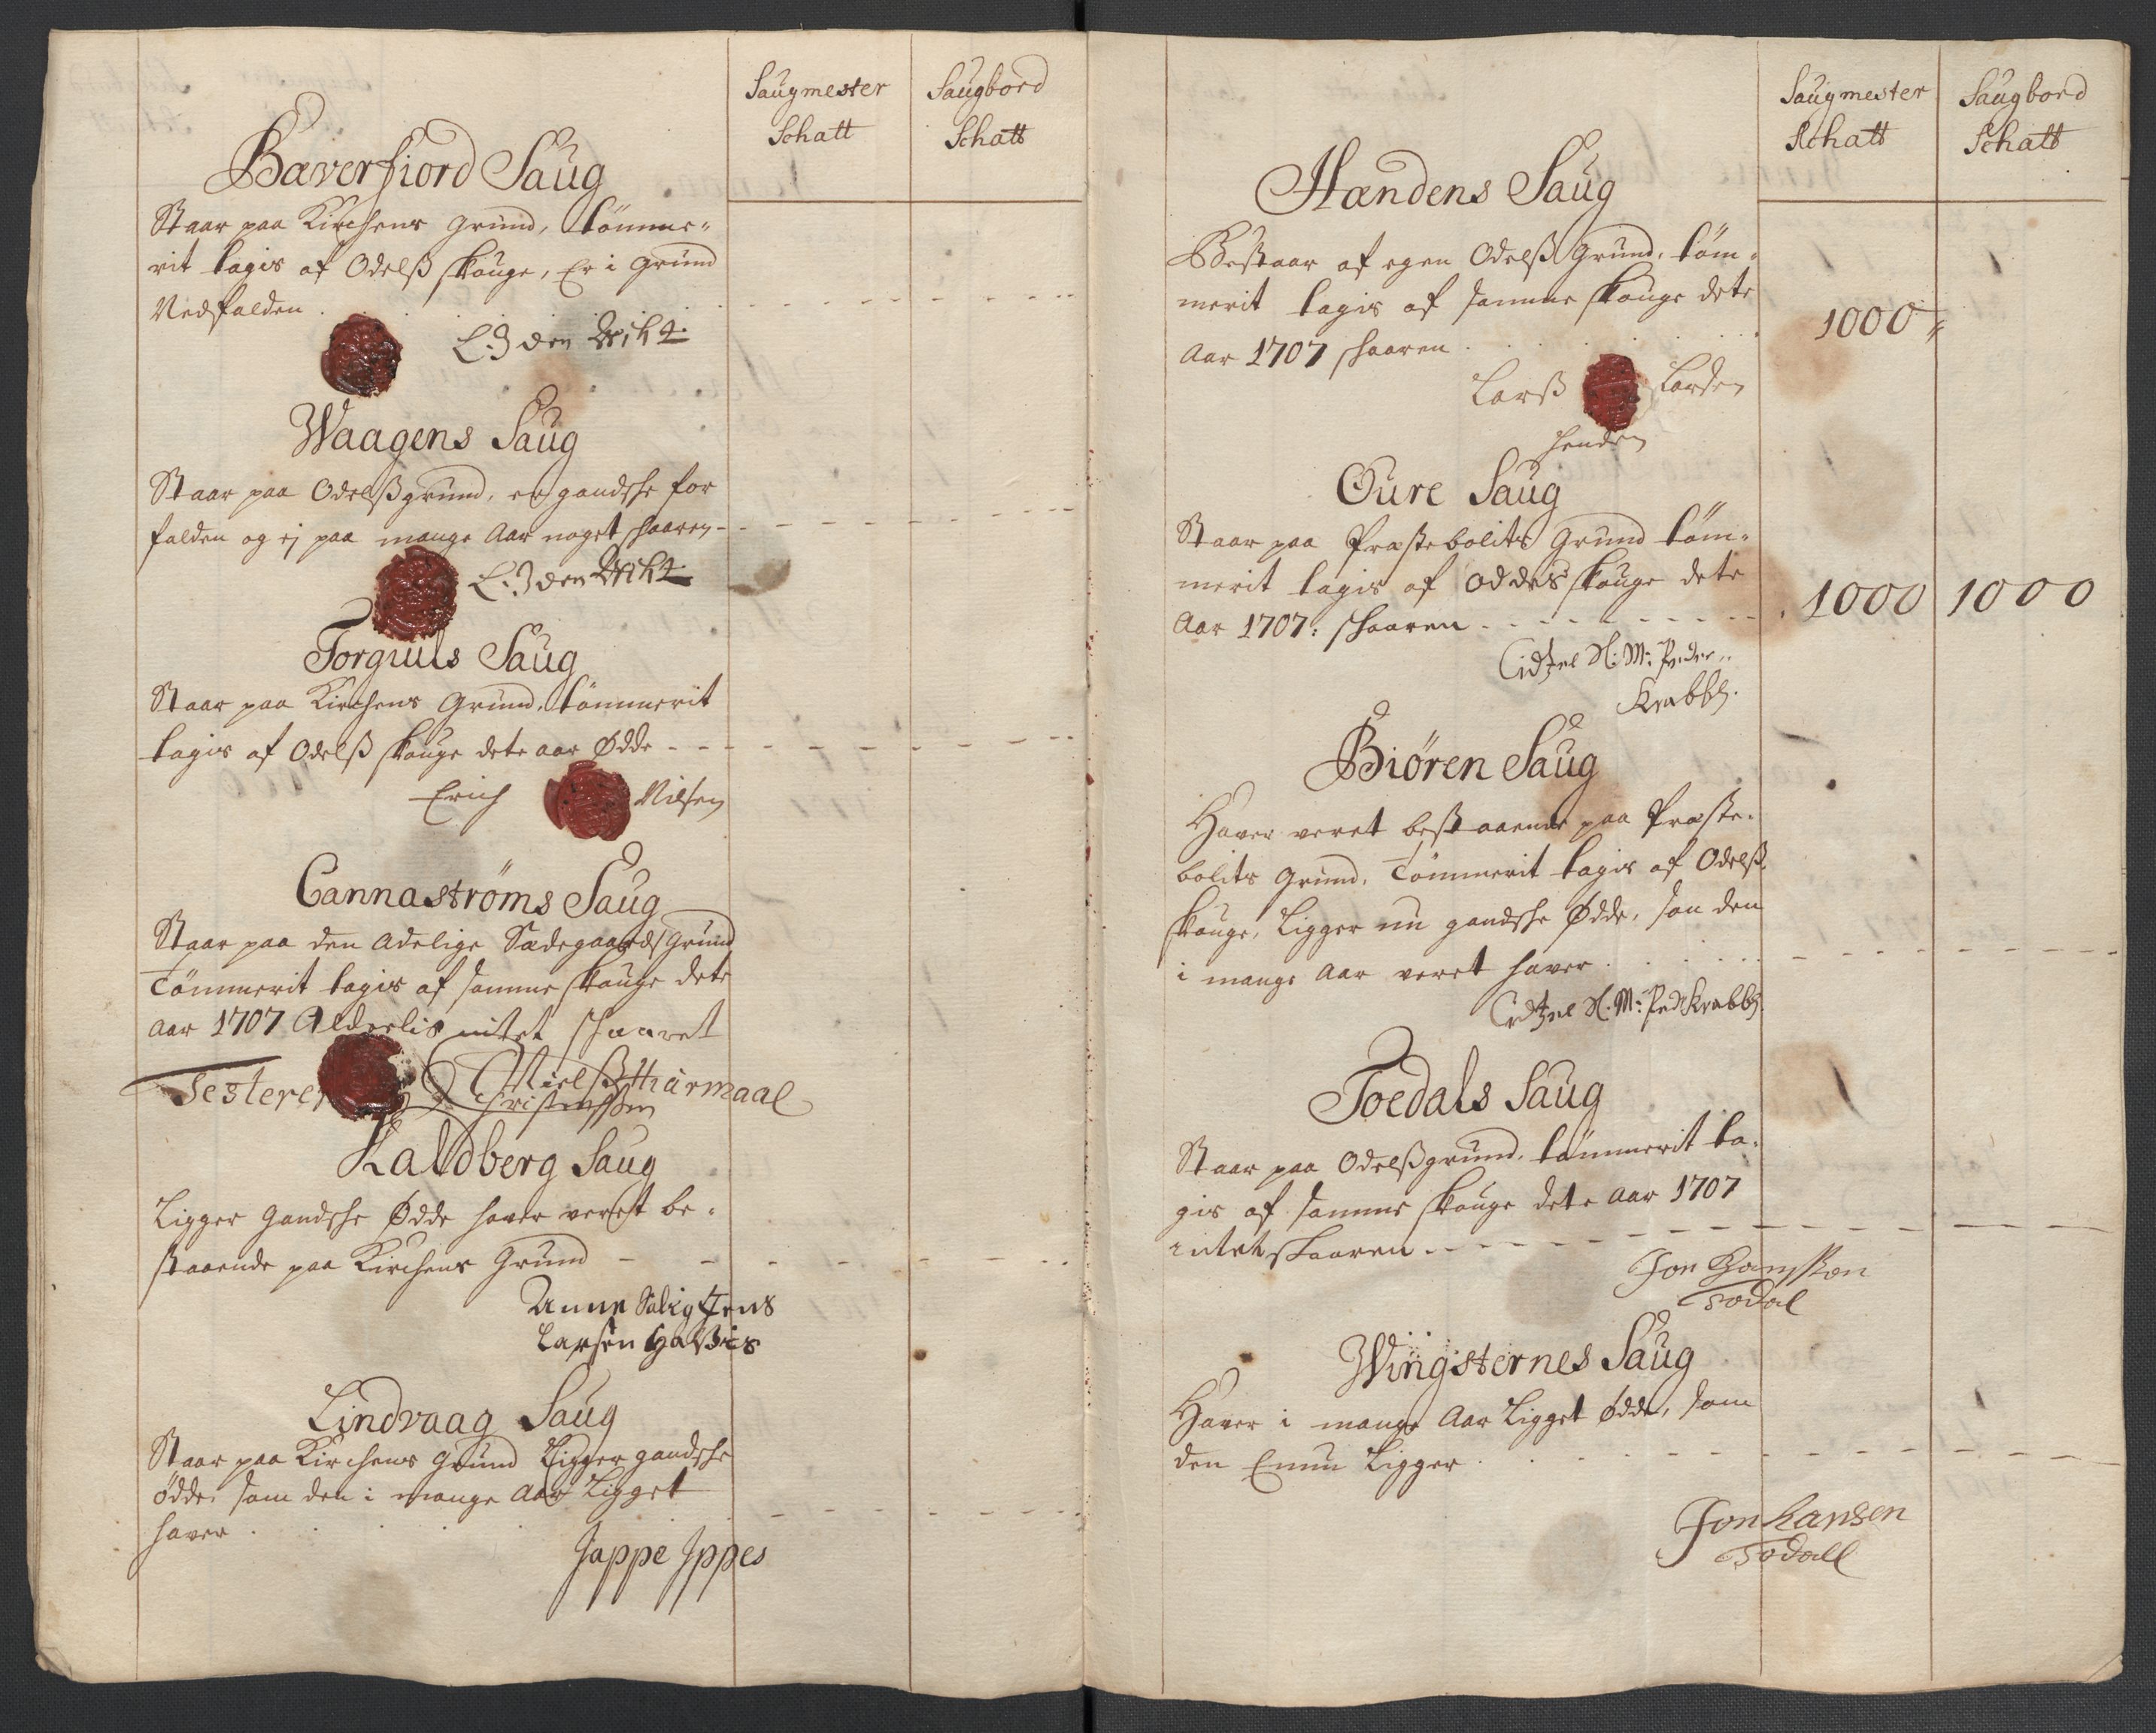 Saugmester Saugbord
Schatt Schatt
Bæverfiord Saug
Staar paa Kirchens grund, tømme-
rit tagis af Odelß skouge, Er i grund
Nedfalden
Waagens Saug
Staar paa Odelßgrund, er gandsche for
falden og ej paa mange Aar noget schaaren
Torguuls Saug
Staar paa Kirchens Grund, tømmerit
tagis af Odelß skouge dete aar Ødde
Erich Nilsen
Cannastrøms Saug
Staar paa den Adelige Sædegaards Grund
Tømmerit tagis af samme skouge dete
Aar 1707 Alderlis intet schaaret
Testerer Nielß Christenssen
Kaldberg Saug
Ligger Gandsche Ødde haver veret be-
staaende paa Kirchens Grund
Anne Salig Jens
Larsen Haßes
Lindvaag Saug
Staar paa Kirchens Grund Ligger gandsche
ødde, som den i mange Aar Ligget
haver
Jappe Ippes
Saugmester Saugbord
Schatt Schatt
Hændens Saug
Bestaar af egen Odelß Grund, tøm-
merit tagis af samme skouge dete
Aar 1707 schaaren 1000
Larß Larsen
Henden
Øure Saug
Staar paa Præstebolits Grund tøm-
merit tagis af Oddes skouge dete
Aar 1707: schaaren 1000 1000
Cidtzel Sl: M: Peder
Krabbes
Biøren Saug
Haver veret bestaaende paa Præste-
bolits Grund, Tømmerit tagis af Odelß
skouge, Ligger nu gandsche Ødde, som den
i mange Aar veret haver
Cidtzel Sl: M: Ped Krabbes
Toedals Saug
Staar paa Odelßgrund, tømmerit ta-
gis af samme skouge dete Aar 1707
intet skaaren
Jon Hansson
Todal
Wingsternes Saug
Haver i mange Aar Ligget Ødde, som
den Ennu Ligger
Jon Hansen
Todall